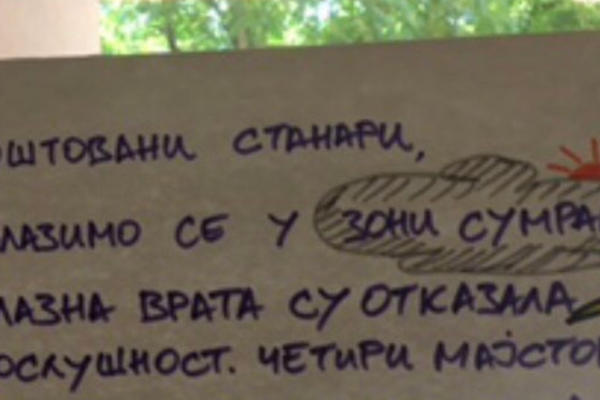 ОШТОВАНИ СТАНАРИ,
ЛАЗИМО СЕ У ЗОНИ СУМРА
ЛАЗНА ВРАТА СУ ОТКАЗАЛА
ОСЛУШНОСТ. ЧЕТИРИ МАЈСТО